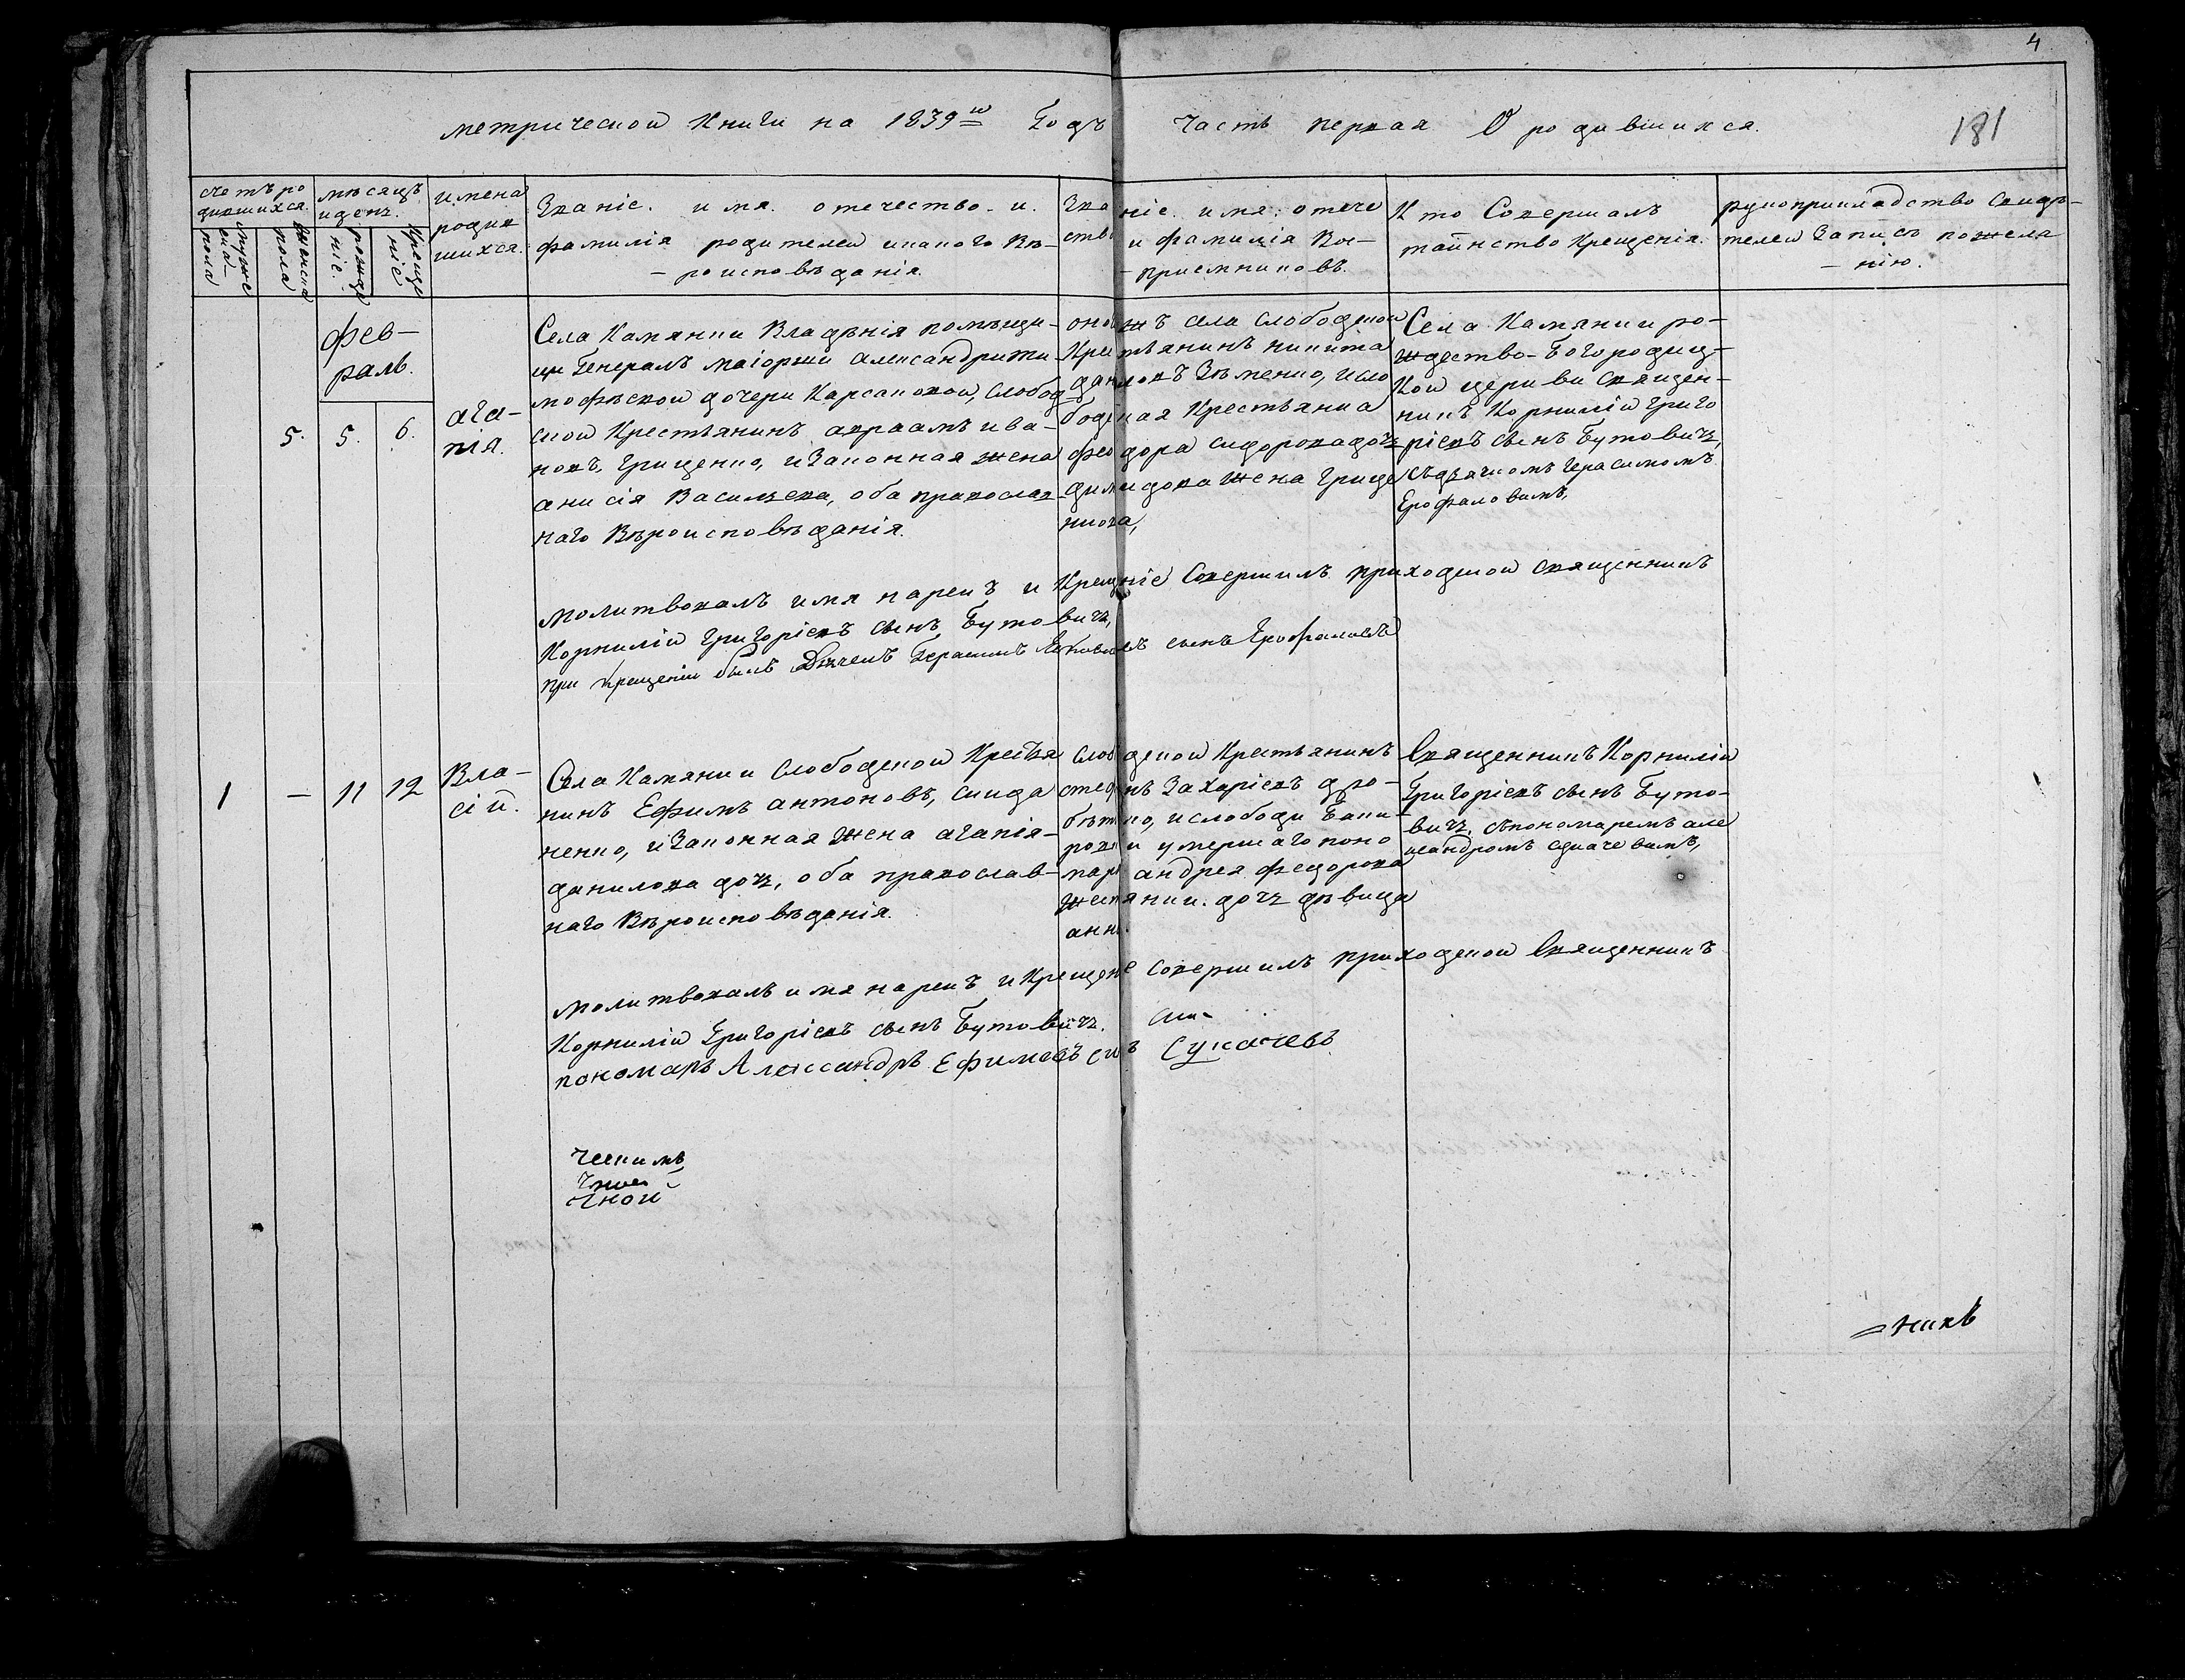 4
метрической Книги на 1839й Годъ часть первая О родившихся.
181
счетъ ро
дившихся.
мужес
ка
пола
женска
пола
мѣсяцъ
и день.
рожде
нiе.
Креще
нiе
имена
родив
шихся.
Званiе. имя. отечество. и.
фамилiя родителей и какого Вѣ-
-роисповѣданiя.
Званiе. имя. отече
ств и фамилiя Вос-
-прiемниковъ.
Кто Совершалъ
таинство Крещенiя.
рукоприкладство Свидѣ-
телей Записъ пожела
-нiю.
фев-
раль.
5. 5. 6.
ага-
пiя.
Села Камянки Владѣнiя помѣщи-
цы Генералъ маiорши александри тим-
мофѣевой дочери Карсаковой, Слобод
ской Крестьянинъ авраамъ ива-
новъ, Грищенко, и Законная жена
анисiя Васильева, оба православ-
наго Вѣроисповѣданiя.
оной жъ села слободской
Крестьянинъ никита
даниловъ Зѣменко, исло
бодская Крестьянка
феодора сидорова доч
димидова жена Грище
нкова,
Села Камянки ро-
ждество-Богородиц-
кой церкви священ-
никъ Корнилiй Григо
рiевъ сынъ Бутовичъ,
съ дьячкомъ Герасимомъ
Ерофаловимъ,
молитвовалъ имя нарекъ и Крещенiе Совершилъ приходской священникъ
Корнилiй Григорiевъ сынъ Бутовичъ,
при крещенiи былъ Дьячекъ Герасимъ Яковлевъ сынъ Ерофаловъ
1 - 11 12
Вла-
сiй.
Села Камянки Слободской Крестья
нинъ Ефимъ антоновъ, скида
ненко, и Законная жена агапiя-
данилова доч, оба православ-
наго Вѣроисповѣданiя.
Слободской Крестьянинъ
стефанъ Захарiевъ дро-
бѣтко, и слободи Баки-
ровки умершаго поно
маря андрея федорова
жестянки. доч дѣвица
анна.
Священникъ Корнилiй
Григорiевъ сынъ Буто-
вичъ, съ пономаремъ але
ксандромъ сукачевимъ,
молитвовалъ имя нарекъ и Крещенiе совершилъ приходской Священникъ
Корнилiй Григорiевъ сынъ Бутовичъ.
пономарь Александръ Ефимовъ синъ Сукачевъ
чной